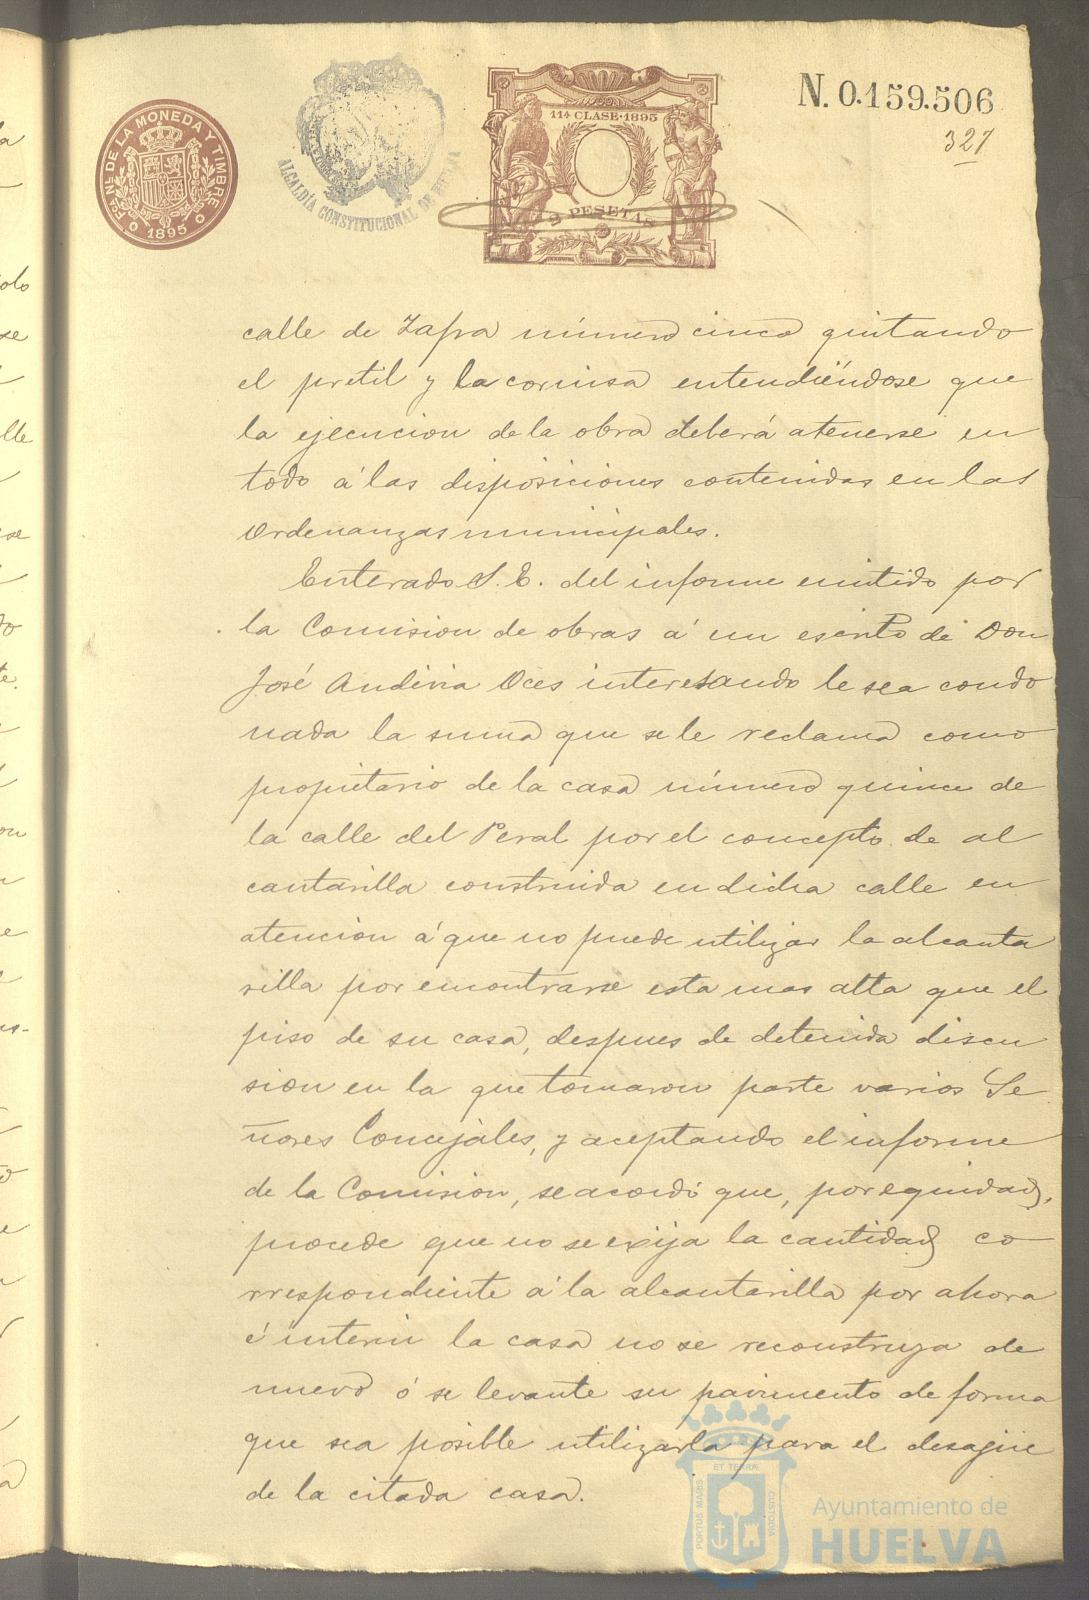 FCA. NL. DE LA MONEDA Y TIMBRE
1895
ALCALDÍA CONSTITUCIONAL DE HUELVA
11ª CLASE·1895
2 PESETAS
N. 0.159.506
327
calle de Zafra número cinco quitando
el pretil y la cornisa entendiéndose que
la ejecucion de la obra deberá atenerse en
todo á las disposiciones contenidas en las
Ordenanzas municipales.
Enterado S. E. del informe emitido por
la Comision de obras á un escrito de Don
José Andivia Oces interesando le sea condo
nada la suma que se le reclama como
propietario de la casa número quince de
la calle del Peral por el concepto de al
cantarilla construida en dicha calle en
atencion á que no puede utilizar la alcanta
rilla por encontrarse esta mas alta que el
piso de su casa, despues de detenida discu
sion en la que tomaron parte varios Se
ñores Concejales, y aceptando el informe
de la Comision, se acordó que, por equidad,
procede que no se exija la cantidad co
rrespondiente á la alcantarilla por ahora
é interin la casa no se reconstruya de
nuevo ó se levante su pavimento de forma
que sea posible utilizarla para el desagüe
de la citada casa.
PORTUS MARIS
ET TERRÆ
CUSTODIA
Ayuntamiento de
HUELVA